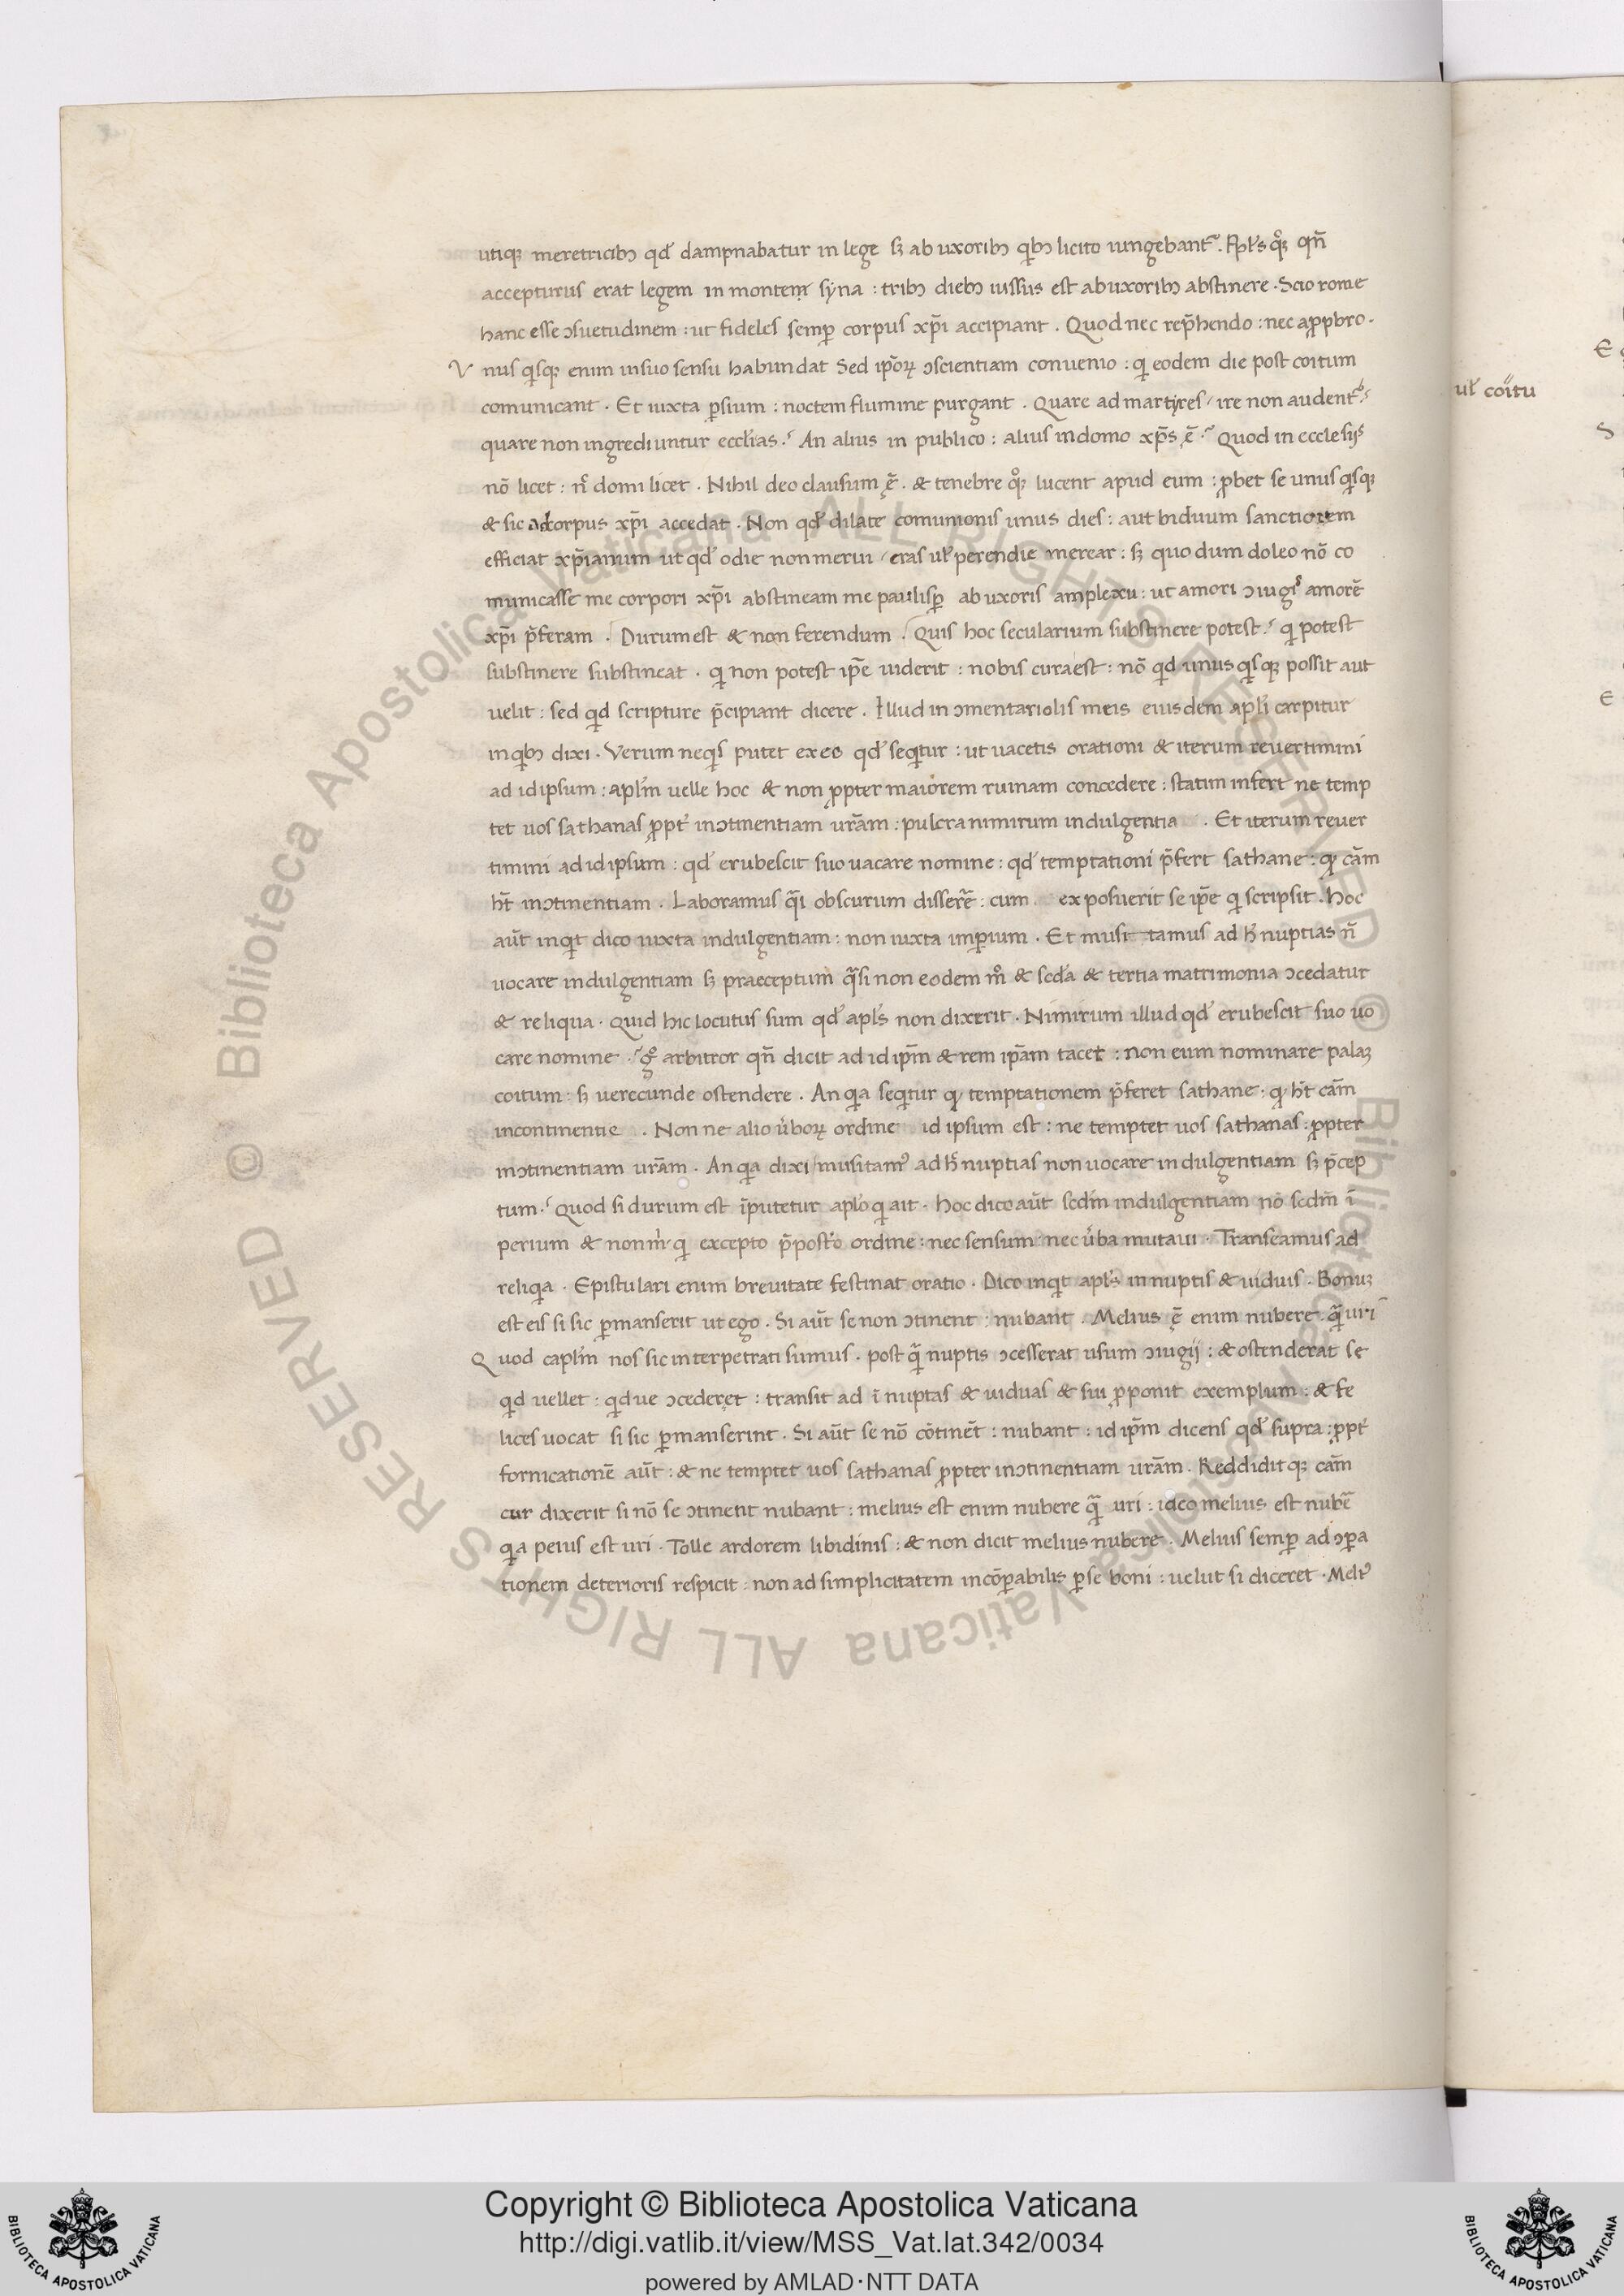 utiqꝫ meretricibꝫ qđ dampnabatur in lege sꝫ ab uxoribꝫ qͥbꝫ licito iungebantᷣ. Apl̓s qͦꝫ qn̄
accepturus erat legem in montem syna : tribꝫ diebꝫ iussus est ab uxoribꝫ abstinere . Scio rome
hanc esse ↄsuetudinem : ut fideles semꝑ corpus xp̄i accipiant . Quod nec rep̄hendo : nec aꝓpbro .
V nus qͥsqꝫ enim in suo sensu habundat Sed ip̄oꝝ ↄscientiam convenio : qͥ eodem die post coitum
comunicant . Et iuxta ꝑsium : noctem flumine purgant . Quare ad martyres / ire non audent?
quare non ingrediuntur eccl̓ias .? An alius in publico : alius in domo xp̄s ē .? Quod in ecclesijs
nō licet : n̄ domi licet . Nihil deo clausum ē . & tenebre qͦꝫ lucent apud eum : ꝓbet se unus qͥsqꝫ
& sic ad corpus xp̄i accedat . Non qđ dilate comunionis unus dies : aut biduum sanctiorem
efficiat xp̄ianum ut qđ odie non merui / cras ul̓ perendie merear : sꝫ quo dum doleo nō co
municasse me corpori xp̄i abstineam me paulisꝑ ab uxoris amplexu : ut amori ↄiugis amorē
xp̄i p̄feram . Durum est & non ferendum . Quis hoc secularium substinere potest .? qͥ potest
substinere substineat . qͥ non potest ip̄e uiderit : nobis cura est : nō qͥd unus qͥsqꝫ possit aut
uelit : sed qͥd scripture p̄cipiant dicere . Illud in ↄmentariolis meis eiusdem apl̓i carpitur
in qͥbꝫ dixi . Verum ne qͥs putet ex eo qđ seqͥtur : ut uacetis orationi & iterum reuertimini
ad id ipsum : apl̓m uelle hoc & non ꝓpter maiorem ruinam concedere : statim infert ne temp
tet uos sathanas ꝓpt̓ inↄtinentiam ur̄am : pulcra nimirum indulgentia . Et iterum reuer
timini ad id ipsum : qđ erubescit suo uacare nomine : qđ temptationi p̄fert sathane : qꝫ cām
ht̄ inↄtinentiam . Laboramus qͣsi obscurum disserē : cum exposuerit se ip̄e qͥ scripsit . Hoc
aūt inqͥt dico iuxta indulgentiam : non iuxta imꝑium . Et musitamus adħ nuptias n̄
uocare indulgentiam sꝫ praeceptum qͣsi non eodem mͦ & scd̓a & tertia matrimonia ↄcedatur
& reliqua . Quid hic locutus sum qđ apl̓s non dixerit . Nimirum illud qđ erubescit suo uo
care nomine .? gͦ arbitror qn̄ dicit ad id ip̄m & rem ip̄am tacet : non eum nominare palaꝫ
coitum : sꝫ uerecunde ostendere . An qͥa seqͥtur qꝫ temptationem p̄feret sathane : qꝫ ht̄ cām
incontinentie . Non ne alio u̓boꝝ ordine id ipsum est : ne temptet uos sathanas : ꝓpter
inↄtinentiam ur̄am . An qͥa dixi / musitamꝰ adħ nuptias non uocare indulgentiam sꝫ p̄cep
tum .? Quod si durum est īputetur apl̓o qͥ ait . Hoc dico aūt scd̓m indulgentiam nō scd̓m ī
perium & non m̓ qͥ excepto p̄post̓o ordine : nec sensum nec u̓ba mutaui . Transeamus ad
reliqͥa . Epistulari enim brevitate festinat oratio . Dico inqͥt apl̓s innuptis & uiduis . Bonuꝫ
est eis si sic ꝑmanserit ut ego . Si aūt se non ↄtinent : nubant . Melius ē enim nubere qͣ uri
Q uod capl̓m nos sic interpetrati sumus . post qͣ nuptis ↄcesserat usum ↄiugij : & ostenderat se
qͥd uellet : qͥd ue ↄcederet : transit ad īnuptas & uiduas & sui ꝓponit exemplum : & fe
lices uocat si sic ꝑmanserint . Si aūt se nō cōtinēt : nubant : id ip̄m dicens qđ supra : ꝓpt̓
fornicationē aūt : & ne temptet uos sathanas ꝓpter inↄtinentiam ur̄am . Reddidit qꝫ cām
cur dixerit si nō se ↄtinent nubant : melius est enim nubere qͣ uri : idco melius est nubē
qͥa peius est uri . Tolle ardorem libidinis : & non dicit melius nubere . Melius semꝑ ad ↄꝑa
tionem deterioris respicit : non ad simplicitatem incōꝑabilis ꝑ se boni : uelut si diceret . Meliꝰ
ul̓ coitu
Copyright © Biblioteca Apostolica Vaticana
http://digi.vatlib.it/view/MSS_Vat.lat.342/0034
powered by AMLAD·NTT DATA
© Biblioteca Apostolica Vaticana ALL RIGHTS RESERVED
© Biblioteca Apostolica Vaticana ALL RIGHTS RESERVED
BIBLIOTECA APOSTOLICA VATICANA
BIBLIOTECA APOSTOLICA VATICANA